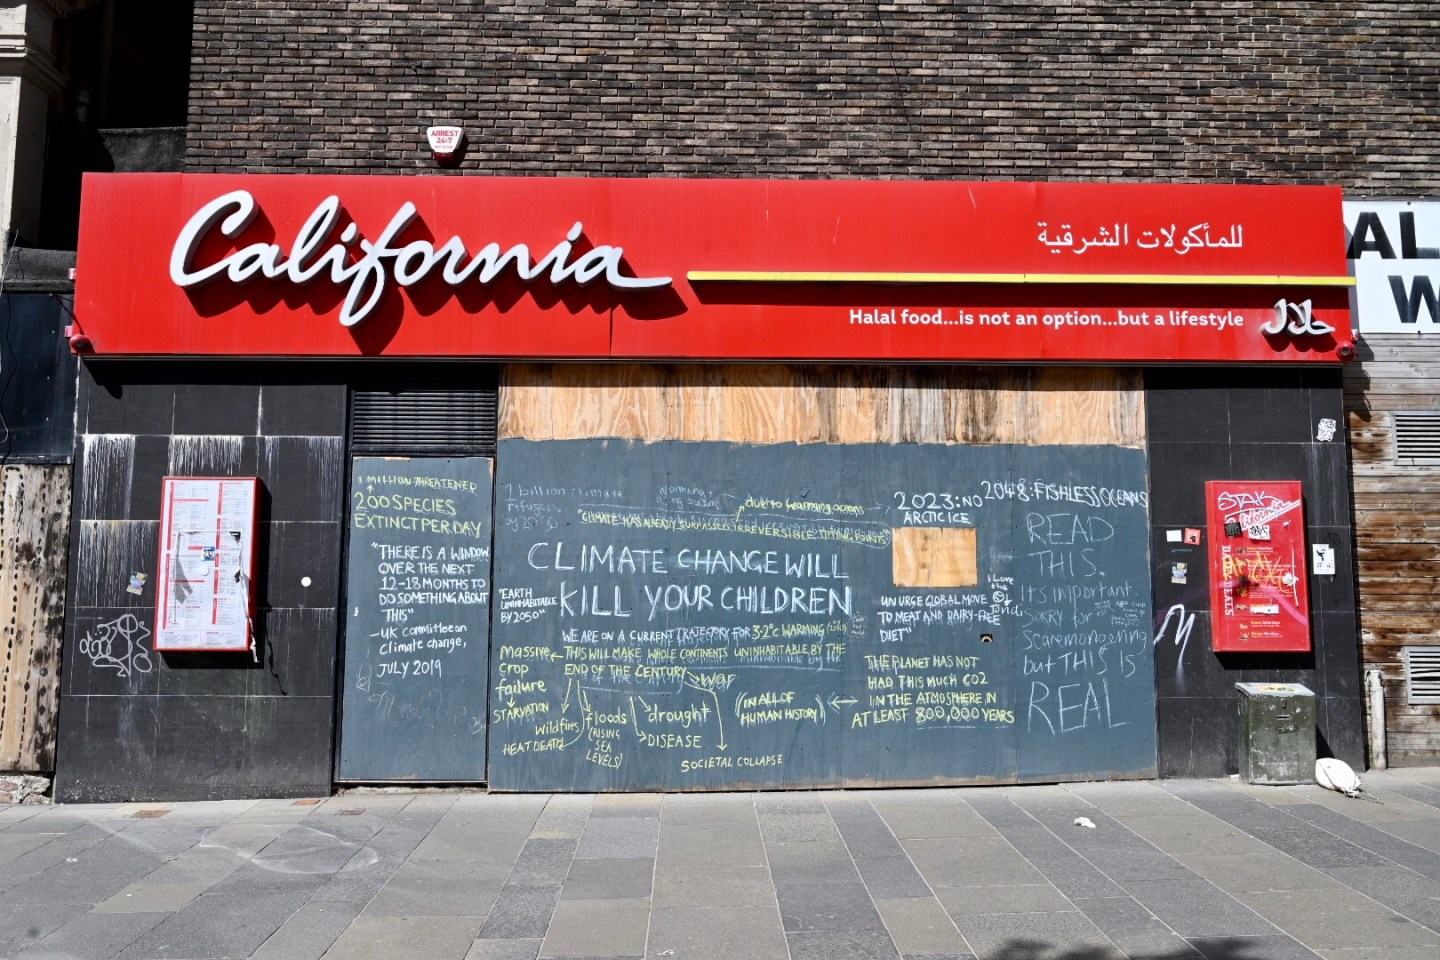 ARREST
24/7
California
للمأكولات الشرقية
Halal food...is not an option...but a lifestyle
حلال
AL
W
1 MILLION THREATENED
200 SPECIES
EXTINCT PER DAY
"THERE IS A WINDOW
OVER THE NEXT
12-18 MONTHS TO
DO SOMETHING ABOUT
THIS"
- UK committee on
climate change,
JULY 2019
1 billion climate
by 20
warming +
due to warming oceans
"CLIMATE HAS ALREADY SURPASSED IRREVERSIBLE TIPPING POINTS"
CLIMATE CHANGE WILL
KILL YOUR CHILDREN
"EARTH
UNINHABITABLE
BY 2050"
WE ARE ON A CURRENT TRAJECTORY FOR 3.2°C WARMING
THIS WILL MAKE WHOLE CONTINENTS UNINHABITABLE BY THE
END OF THE CENTURY
war
Massive
crop
failure
STARVATION
Wildfires
HEAT DEATH
floods
(RISING
SEA
LEVELS)
drought
DISEASE
SOCIETAL COLLAPSE
2023: NO
ARCTIC ICE
2048: FISHLESS OCEANS
UN URGE GLOBAL MOVE
TO MEAT AND DAIRY-FREE
DIET"
I Love
the
THE PLANET HAS NOT
HAD THIS MUCH CO2
IN THE ATMOSPHERE IN
AT LEAST 800,000 YEARS
(IN ALL OF
HUMAN HISTORY)
READ
THIS.
Its important.
SORRY for
scaremongering
but THIS IS
REAL
STAK
California